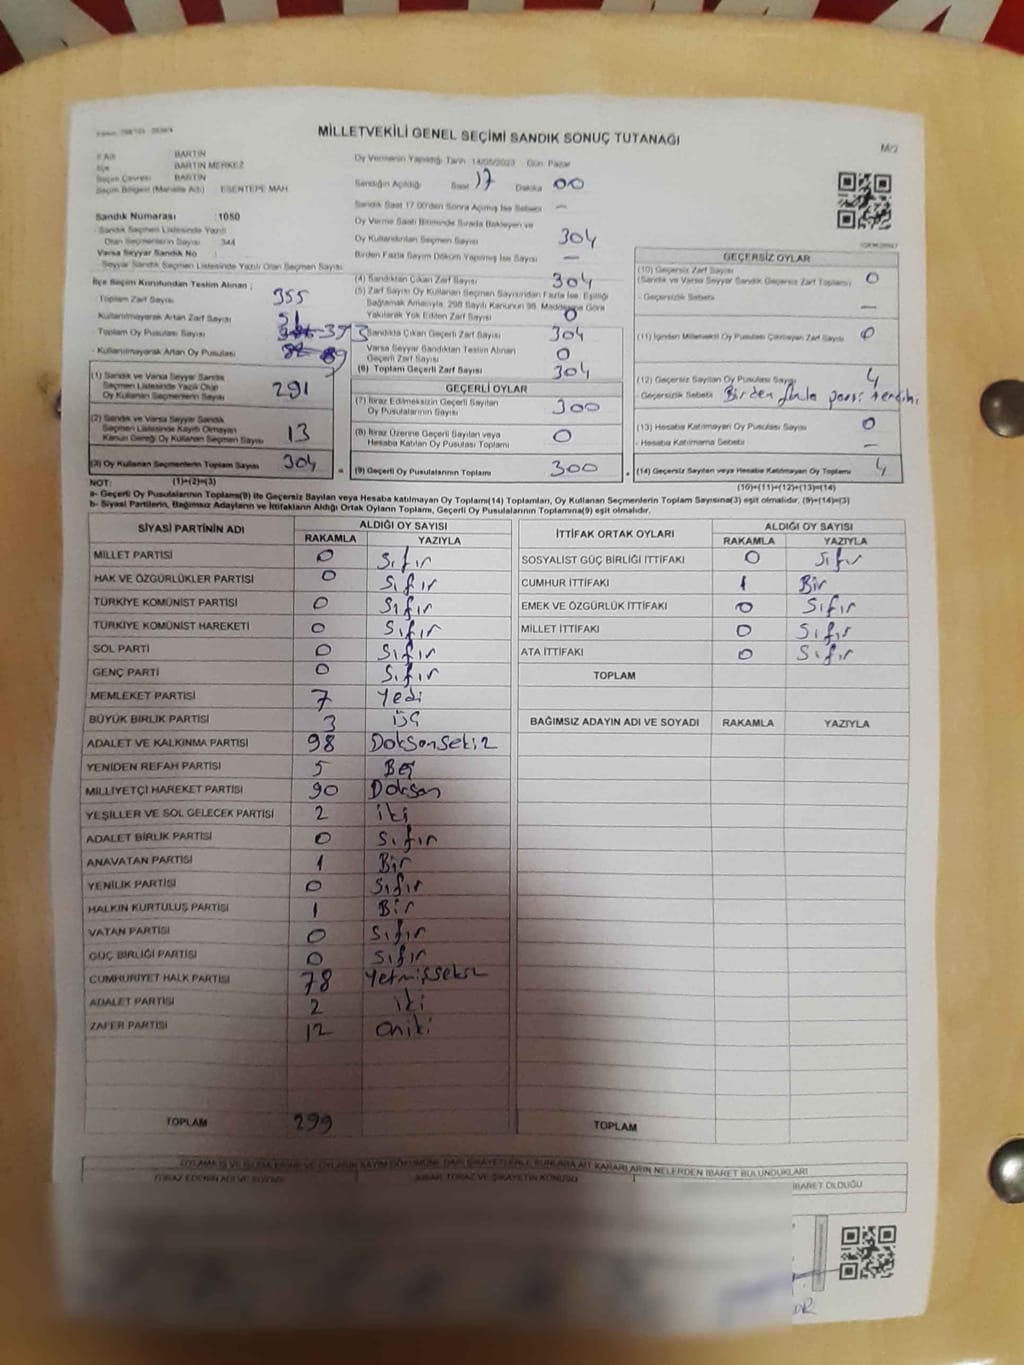 MİLLETVEKİLİ GENEL SEÇİMİ SANDIK SONUÇ TUTANAĞI
M/2
İl Adı BARTIN
İlçe BARTIN MERKEZ
Seçim Çevresi BARTIN
Seçim Bölgesi (Mahalle Adı) ESENTEPE MAH.
Sandık Numarası : 1050
Sandık Seçmen Listesinde Yazılı
Olan Seçmenlerin Sayısı 344
Varsa Seyyar Sandık No :
Seyyar Sandık Seçmen Listesinde Yazılı Olan Seçmen Sayısı
Oy Vermenin Yapıldığı Tarih 14/05/2023 Gün Pazar
Sandığın Açıldığı Saat 17 Dakika 00
Sandık Saat 17.00'den Sonra Açılmış İse Sebebi —
Oy Verme Saati Bitiminde Sırada Bekleyen ve
Oy Kullandırılan Seçmen Sayısı 304
Birden Fazla Sayım Döküm Yapılmış İse Sayısı —
İlçe Seçim Kurulundan Teslim Alınan ;
Toplam Zarf Sayısı 355
Kullanılmayarak Artan Zarf Sayısı 51
- Toplam Oy Pusulası Sayısı 393
- Kullanılmayarak Artan Oy Pusulası 89
(1) Sandık ve Varsa Seyyar Sandık
Seçmen Listesinde Yazılı Olup
Oy Kullanan Seçmenlerin Sayısı 291
(2) Sandık ve Varsa Seyyar Sandık
Seçmen Listesinde Kayıtlı Olmayan
Kanun Gereği Oy Kullanan Seçmen Sayısı 13
(3) Oy Kullanan Seçmenlerin Toplam Sayısı 304
(4) Sandıktan Çıkan Zarf Sayısı 304
(5) Zarf Sayısı Oy Kullanan Seçmen Sayısından Fazla İse, Eşitliği
Sağlamak Amacıyla, 298 Sayılı Kanunun 98. Maddesine Göre
Yakılarak Yok Edilen Zarf Sayısı 0
Sandıkta Çıkan Geçerli Zarf Sayısı 304
Varsa Seyyar Sandıktan Teslim Alınan
Geçerli Zarf Sayısı 0
(6) Toplam Geçerli Zarf Sayısı 304
GEÇERLİ OYLAR
(7) İtiraz Edilmeksizin Geçerli Sayılan
Oy Pusulalarının Sayısı 300
(8) İtiraz Üzerine Geçerli Sayılan veya
Hesaba Katılan Oy Pusulası Toplamı 0
= (9) Geçerli Oy Pusulalarının Toplamı 300
GEÇERSİZ OYLAR
(10) Geçersiz Zarf Sayısı
(Sandık ve Varsa Seyyar Sandık Geçersiz Zarf Toplamı) 0
- Geçersizlik Sebebi —
(11) İçinden Milletvekili Oy Pusulası Çıkmayan Zarf Sayısı 0
(12) Geçersiz Sayılan Oy Pusulası Sayısı 4
- Geçersizlik Sebebi Birden fazla parti tercihi
(13) Hesaba Katılmayan Oy Pusulası Sayısı 0
- Hesaba Katılmama Sebebi —
(14) Geçersiz Sayılan veya Hesaba Katılmayan Oy Toplamı 4
NOT: (1)+(2)=(3)
(10)+(11)+(12)+(13)=(14)
a- Geçerli Oy Pusulalarının Toplamı(9) ile Geçersiz Sayılan veya Hesaba katılmayan Oy Toplamı(14) Toplamları, Oy Kullanan Seçmenlerin Toplam Sayısına(3) eşit olmalıdır. (9)+(14)=(3)
b- Siyasi Partilerin, Bağımsız Adayların ve İttifakların Aldığı Ortak Oyların Toplamı, Geçerli Oy Pusulalarının Toplamına(9) eşit olmalıdır.
SİYASİ PARTİNİN ADI ALDIĞI OY SAYISI
RAKAMLA YAZIYLA
MİLLET PARTİSİ 0 Sıfır
HAK VE ÖZGÜRLÜKLER PARTİSİ 0 Sıfır
TÜRKİYE KOMÜNİST PARTİSİ 0 Sıfır
TÜRKİYE KOMÜNİST HAREKETİ 0 Sıfır
SOL PARTİ 0 Sıfır
GENÇ PARTİ 0 Sıfır
MEMLEKET PARTİSİ 7 Yedi
BÜYÜK BİRLİK PARTİSİ 3 üç
ADALET VE KALKINMA PARTİSİ 98 Doksansekiz
YENİDEN REFAH PARTİSİ 5 Beş
MİLLİYETÇİ HAREKET PARTİSİ 90 Doksan
YEŞİLLER VE SOL GELECEK PARTİSİ 2 iki
ADALET BİRLİK PARTİSİ 0 Sıfır
ANAVATAN PARTİSİ 1 Bir
YENİLİK PARTİSİ 0 Sıfır
HALKIN KURTULUŞ PARTİSİ 1 Bir
VATAN PARTİSİ 0 Sıfır
GÜÇ BİRLİĞİ PARTİSİ 0 Sıfır
CUMHURİYET HALK PARTİSİ 78 Yetmişsekiz
ADALET PARTİSİ 2 iki
ZAFER PARTİSİ 12 oniki
TOPLAM 299
İTTİFAK ORTAK OYLARI ALDIĞI OY SAYISI
RAKAMLA YAZIYLA
SOSYALİST GÜÇ BİRLİĞİ İTTİFAKI 0 Sıfır
CUMHUR İTTİFAKI 1 Bir
EMEK VE ÖZGÜRLÜK İTTİFAKI 0 Sıfır
MİLLET İTTİFAKI 0 Sıfır
ATA İTTİFAKI 0 Sıfır
TOPLAM
BAĞIMSIZ ADAYIN ADI VE SOYADI RAKAMLA YAZIYLA
TOPLAM
İBARET OLDUĞU